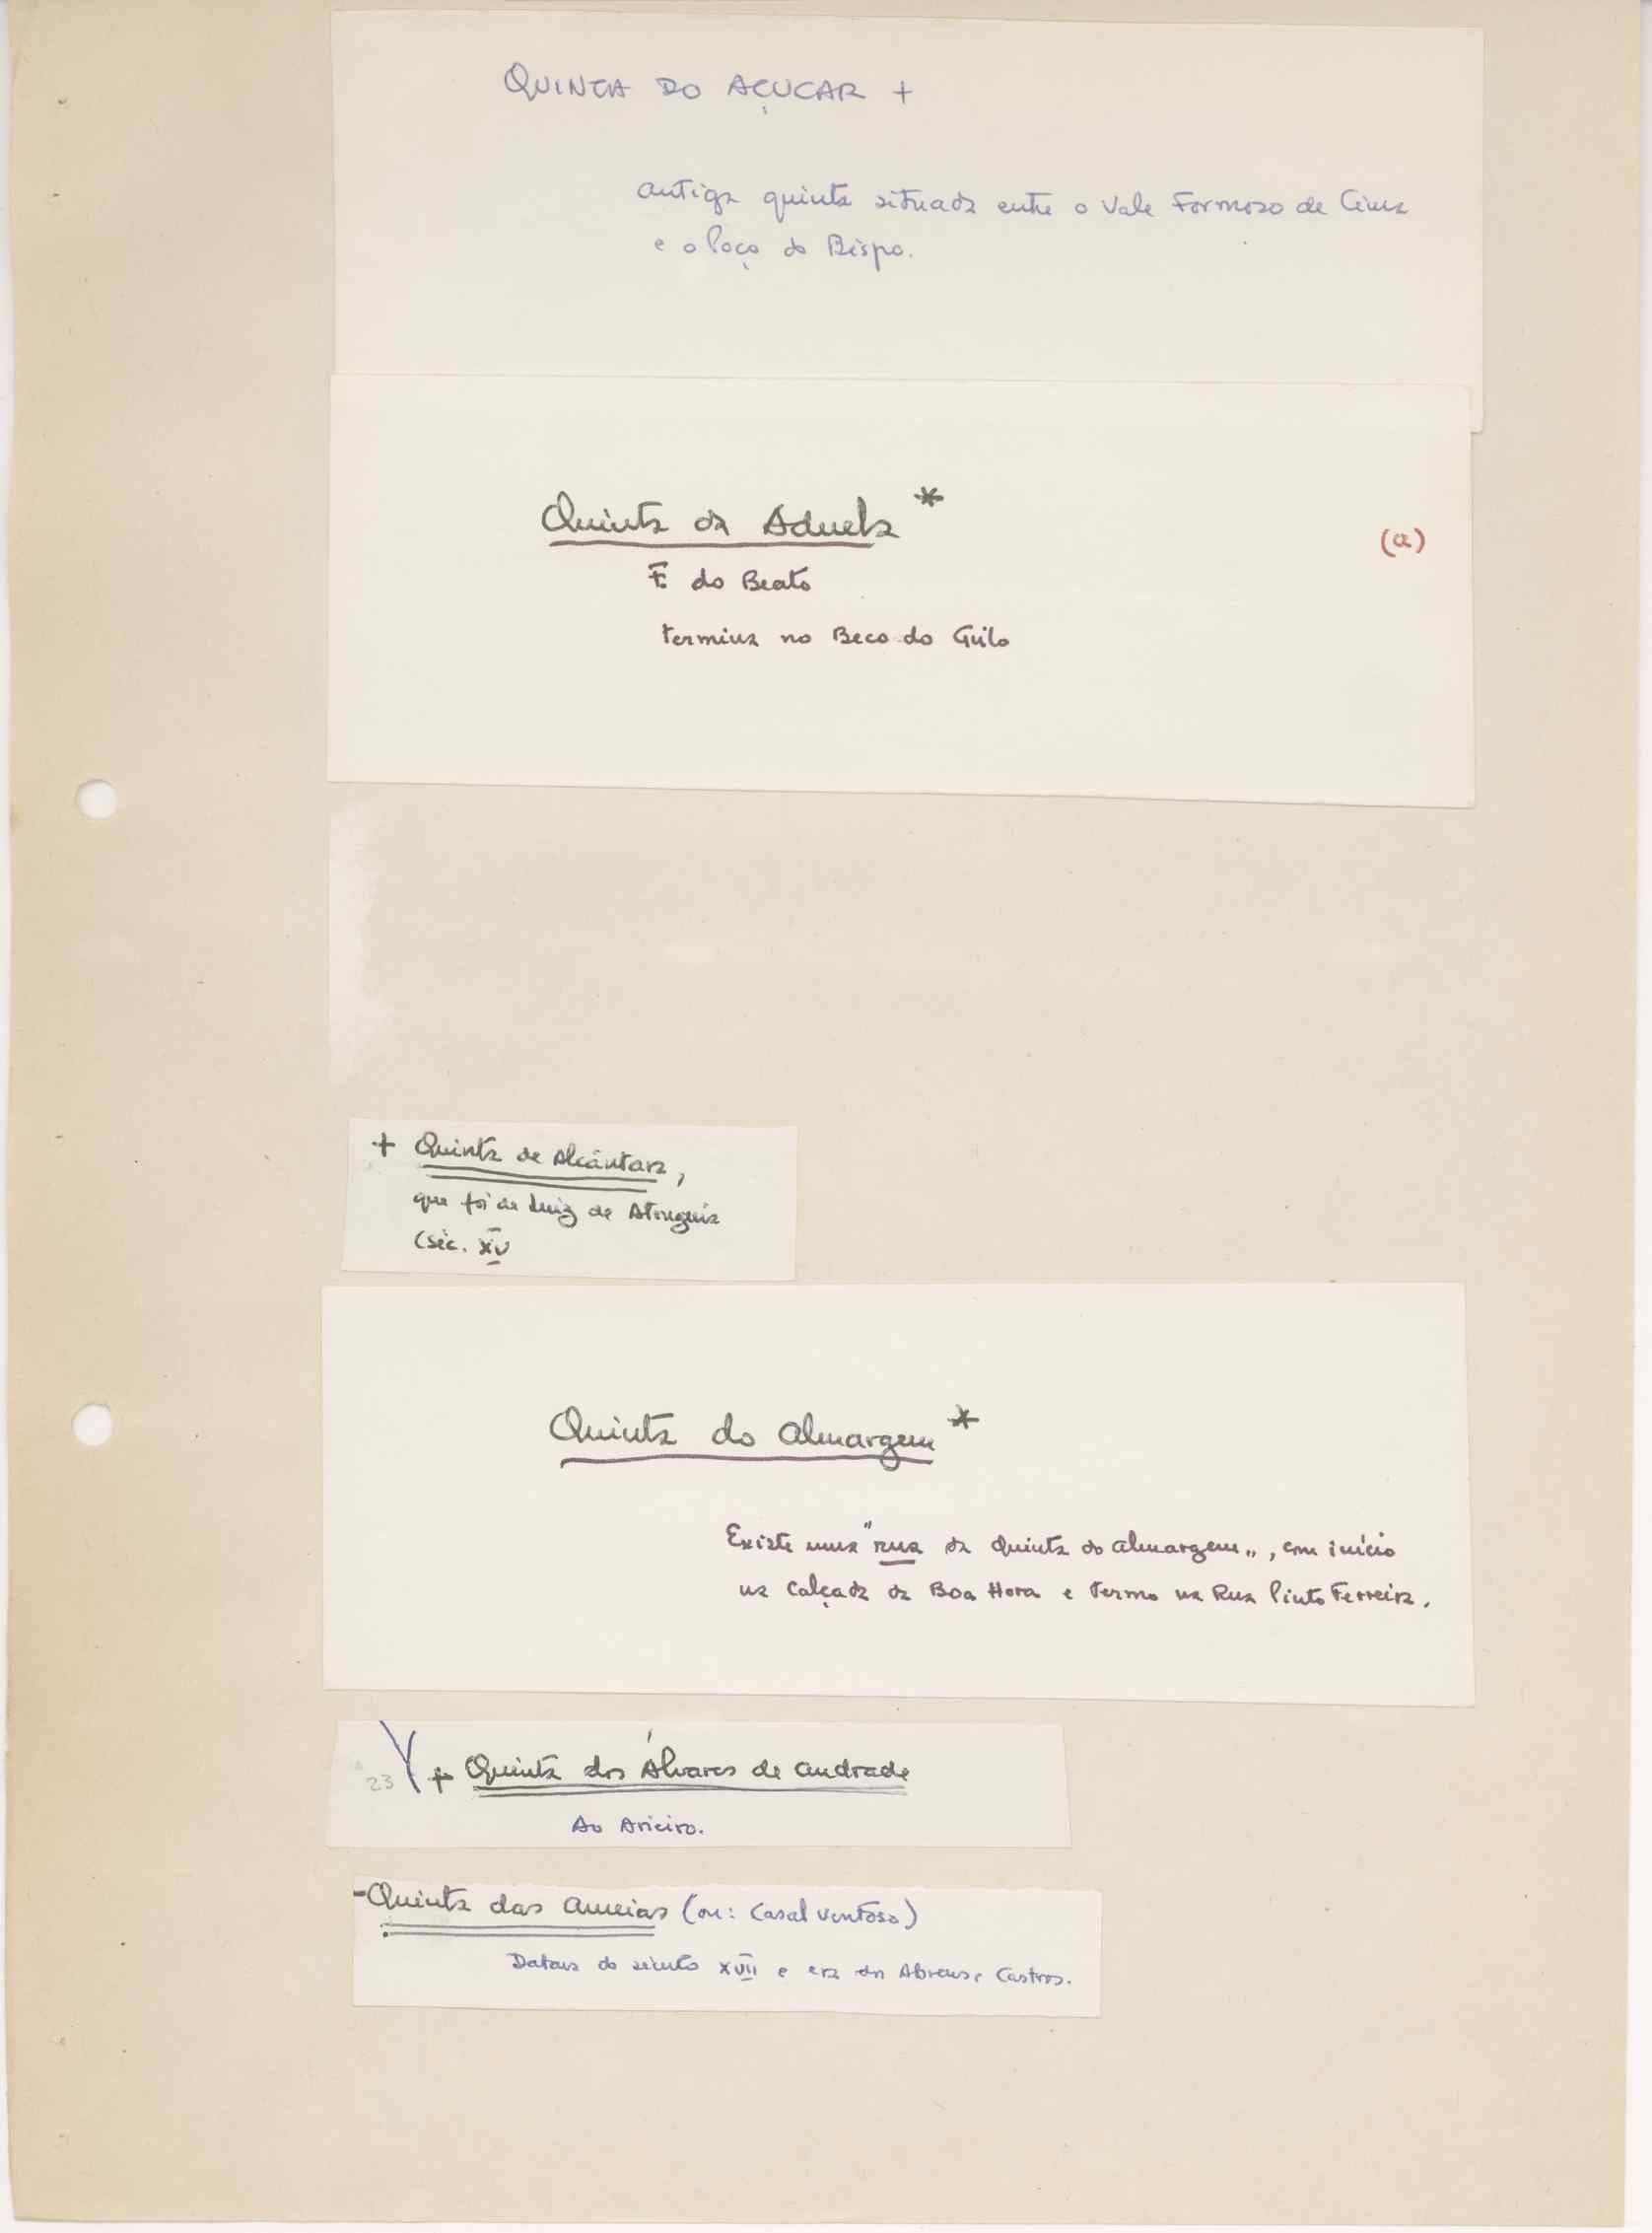 QUINTA DO AÇUCAR +
antiga quinta situada entre o Vale Formoso de Cima
e o Poço do Bispo.
Quinta da Aduela *
(a)
F. do Beato
termina no Beco do Grilo
+ Quinta de Alcântara,
que foi de Luiz de Atouguia
(séc. XV
Quinta do Almargem *
Existe uma "rua da Quinta do Almargem", com início
na Calçada da Boa Hora e termo na Rua Pinto Ferreira.
23 + Quinta dos Álvares de Andrade
Ao Arieiro.
- Quinta das Ameias (ou: Casal Ventoso)
Datava do século XVII e era dos Abreus e Castros.